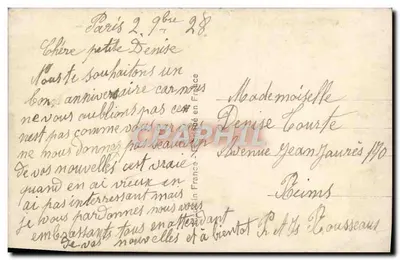 Paris 2 9bre 28
Chère petite Denise
Nous te souhaitons un
bon anniversaire car nous
ne vous oublions pas ce
nest pas comme vous vous
ne nous donnez pas beaucoup
de vos nouvelles cest vraie
quand en ai vieux en
ai pas intéressant mais
je vous pardonnes nous vous
embrassants tous en attendant
de vos nouvelles et à bientot P. et Is Rousseaux
en France
Mademoiselle
Denise Tourte
Avenue Jean Jaurès 170
Reims